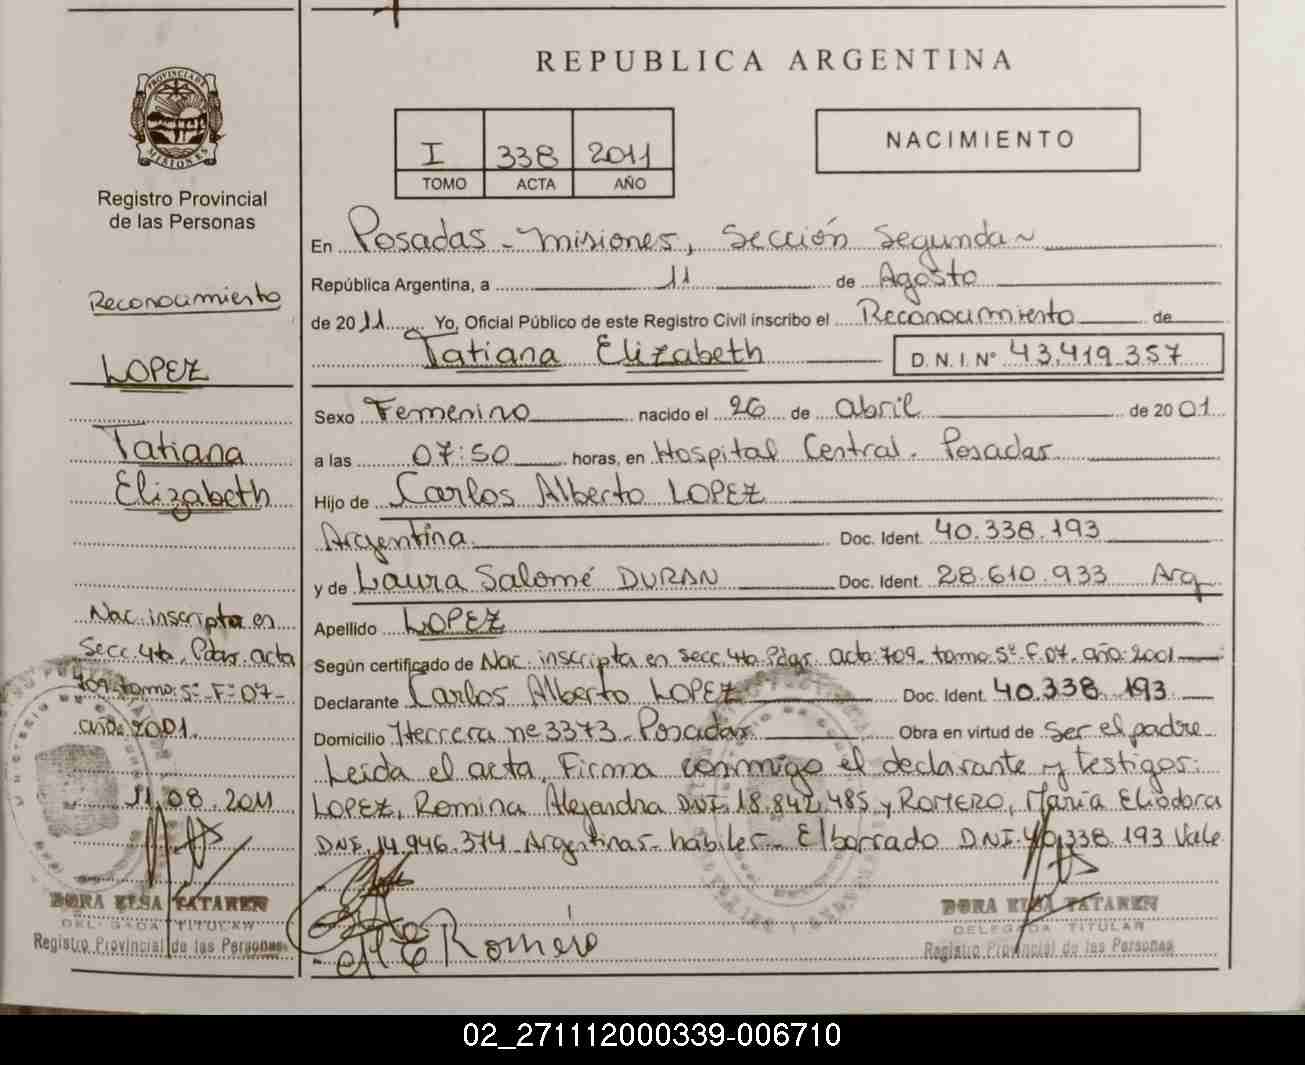 REPUBLICA ARGENTINA
PROVINCIA DE MISIONES
Registro Provincial
de las Personas
I 338 2011
TOMO ACTA AÑO
NACIMIENTO
En Posadas - Misiones, Sección Segunda
República Argentina, a 11 de Agosto
de 2011 Yo, Oficial Público de este Registro Civil inscribo el Reconocimiento de
Tatiana Elizabeth D.N.I.Nº 43.419.357
Sexo Femenino nacido el 26 de abril de 2001
a las 07:50 horas, en Hospital Central. Posadas
Hijo de Carlos Alberto LOPEZ
Argentina Doc. Ident. 40.338.193
y de Laura Salomé DURAN Doc. Ident. 28.610.933 Arg
Apellido LOPEZ
Según certificado de Nac. inscripta en secc. 4ta. Pdas. acta 709 - tomo 5º - F. 07 - año: 2001
Declarante Carlos Alberto LOPEZ Doc. Ident. 40.338.193
Domicilio Herrera ne 3373 - Posadas Obra en virtud de Ser el padre
Leida el acta, Firma conmigo el declarante y testigos:
LOPEZ, Romina Alejandra DNI. 18.842.485 y ROMERO, María Eliodora
DNI. 14.946.374 - Argentinas - hábiles - El borrado DNI. 40.338.193 Vale
Romero
DORA ELSA TATAREN
DELEGADA TITULAR
Registro Provincial de las Personas
Reconocimiento
LOPEZ
Tatiana
Elizabeth
Nac. inscripta en
Secc. 4ta. Pdas. acta
709 - tomo: 5º - F: 07 -
año: 2001.
11.08.2011
DORA ELSA TATAREN
DELEGADA TITULAR
Registro Provincial de las Personas
02_271112000339-006710